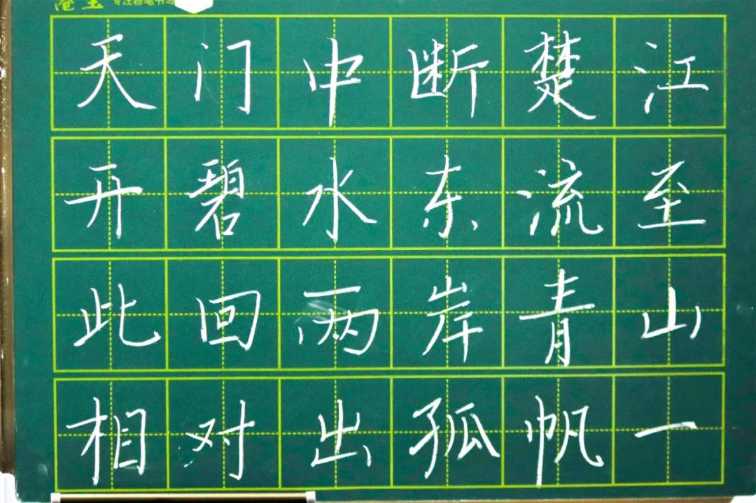 天门中断楚江
开碧水东流至
此回两岸青山
相对出孤帆一